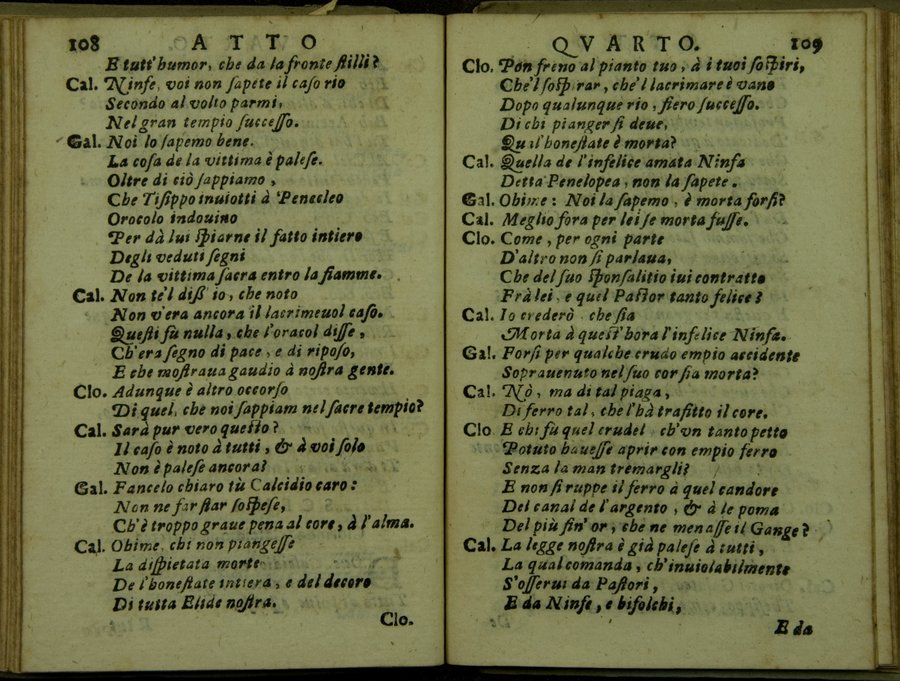 108 ATTO
E tutt'humor, che da la fronte ſtilli?
Cal. Ninfe, voi non ſapete il caſo rio
Secondo al volto parmi,
Nel gran tempio ſucceſſo.
Gal. Noi lo ſapemo bene.
La coſa de la vittima è paleſe.
Oltre di ciò ſappiamo,
Che Tiſippo inuiotti à Penecleo
Orocolo indouino
Per dà lui ſpiarne il fatto intiero
Degli veduti ſegni
De la vittima ſacra entro la fiamme.
Cal. Non te'l diß' io, che noto
Non v'era ancora il lacrimeuol caſo.
Queſti fù nulla, che l'oracol diſſe,
Ch'era ſegno di pace, e di ripoſo,
E che moſtraua gaudio à noſtra gente.
Clo. Adunque è altro occorſo
Di quel, che noi ſappiam nel ſacre tempio?
Cal. Sarà pur vero queſto?
Il caſo è noto à tutti, & à voi ſolo
Non è paleſe ancora?
Gal. Fancelo chiaro tù Calcidio caro:
Non ne far ſtar ſoſpeſe,
Ch'è troppo graue pena al core, à l'alma.
Cal. Ohime, chi non piangeſſe
La diſpietata morte
De l'honeſtate intiera, e del decoro
Di tutta Elide noſtra.
Clo.
QVARTO. 109
Clo. Pon freno al pianto tuo, à i tuoi ſoſpiri,
Che'l ſoſpirar, che'l lacrimare è vano
Dopo qualunque rio, fiero ſucceſſo.
Di chi pianger ſi deue,
Qu il'honeſtate è morta?
Cal. Quella de l'infelice amata Ninfa
Detta Penelopea, non la ſapete.
Gal. Ohime: Noi la ſapemo, è morta forſi?
Cal. Meglio fora per lei ſe morta fuſſe.
Clo. Come, per ogni parte
D'altro non ſi parlaua,
Che del ſuo ſponſalitio iui contratto
Frà lei, e quel Paſtor tanto felice?
Cal. Io crederò, che ſia
Morta à queſt'hora l'infelice Ninfa.
Gal. Forſi per qualche crudo empio accidente
Soprauenuto nel ſuo cor ſia morta?
Cal. Nò, ma di tal piaga,
Di ferro tal, che l'hà trafitto il core.
Clo E chi fù quel crudel, ch'vn tanto petto
Potuto haueſſe aprir con empio ferro
Senza la man tremargli?
E non ſi ruppe il ferro à quel candore
Del canal de l'argento, & à le poma
Del più fin' or, che ne menaſſe il Gange?
Cal. La legge noſtra è già paleſe à tutti,
La qual comanda, ch'inuiolabilmente
S'oſſerui da Paſtori,
E da Ninfe, e bifolchi,
E da